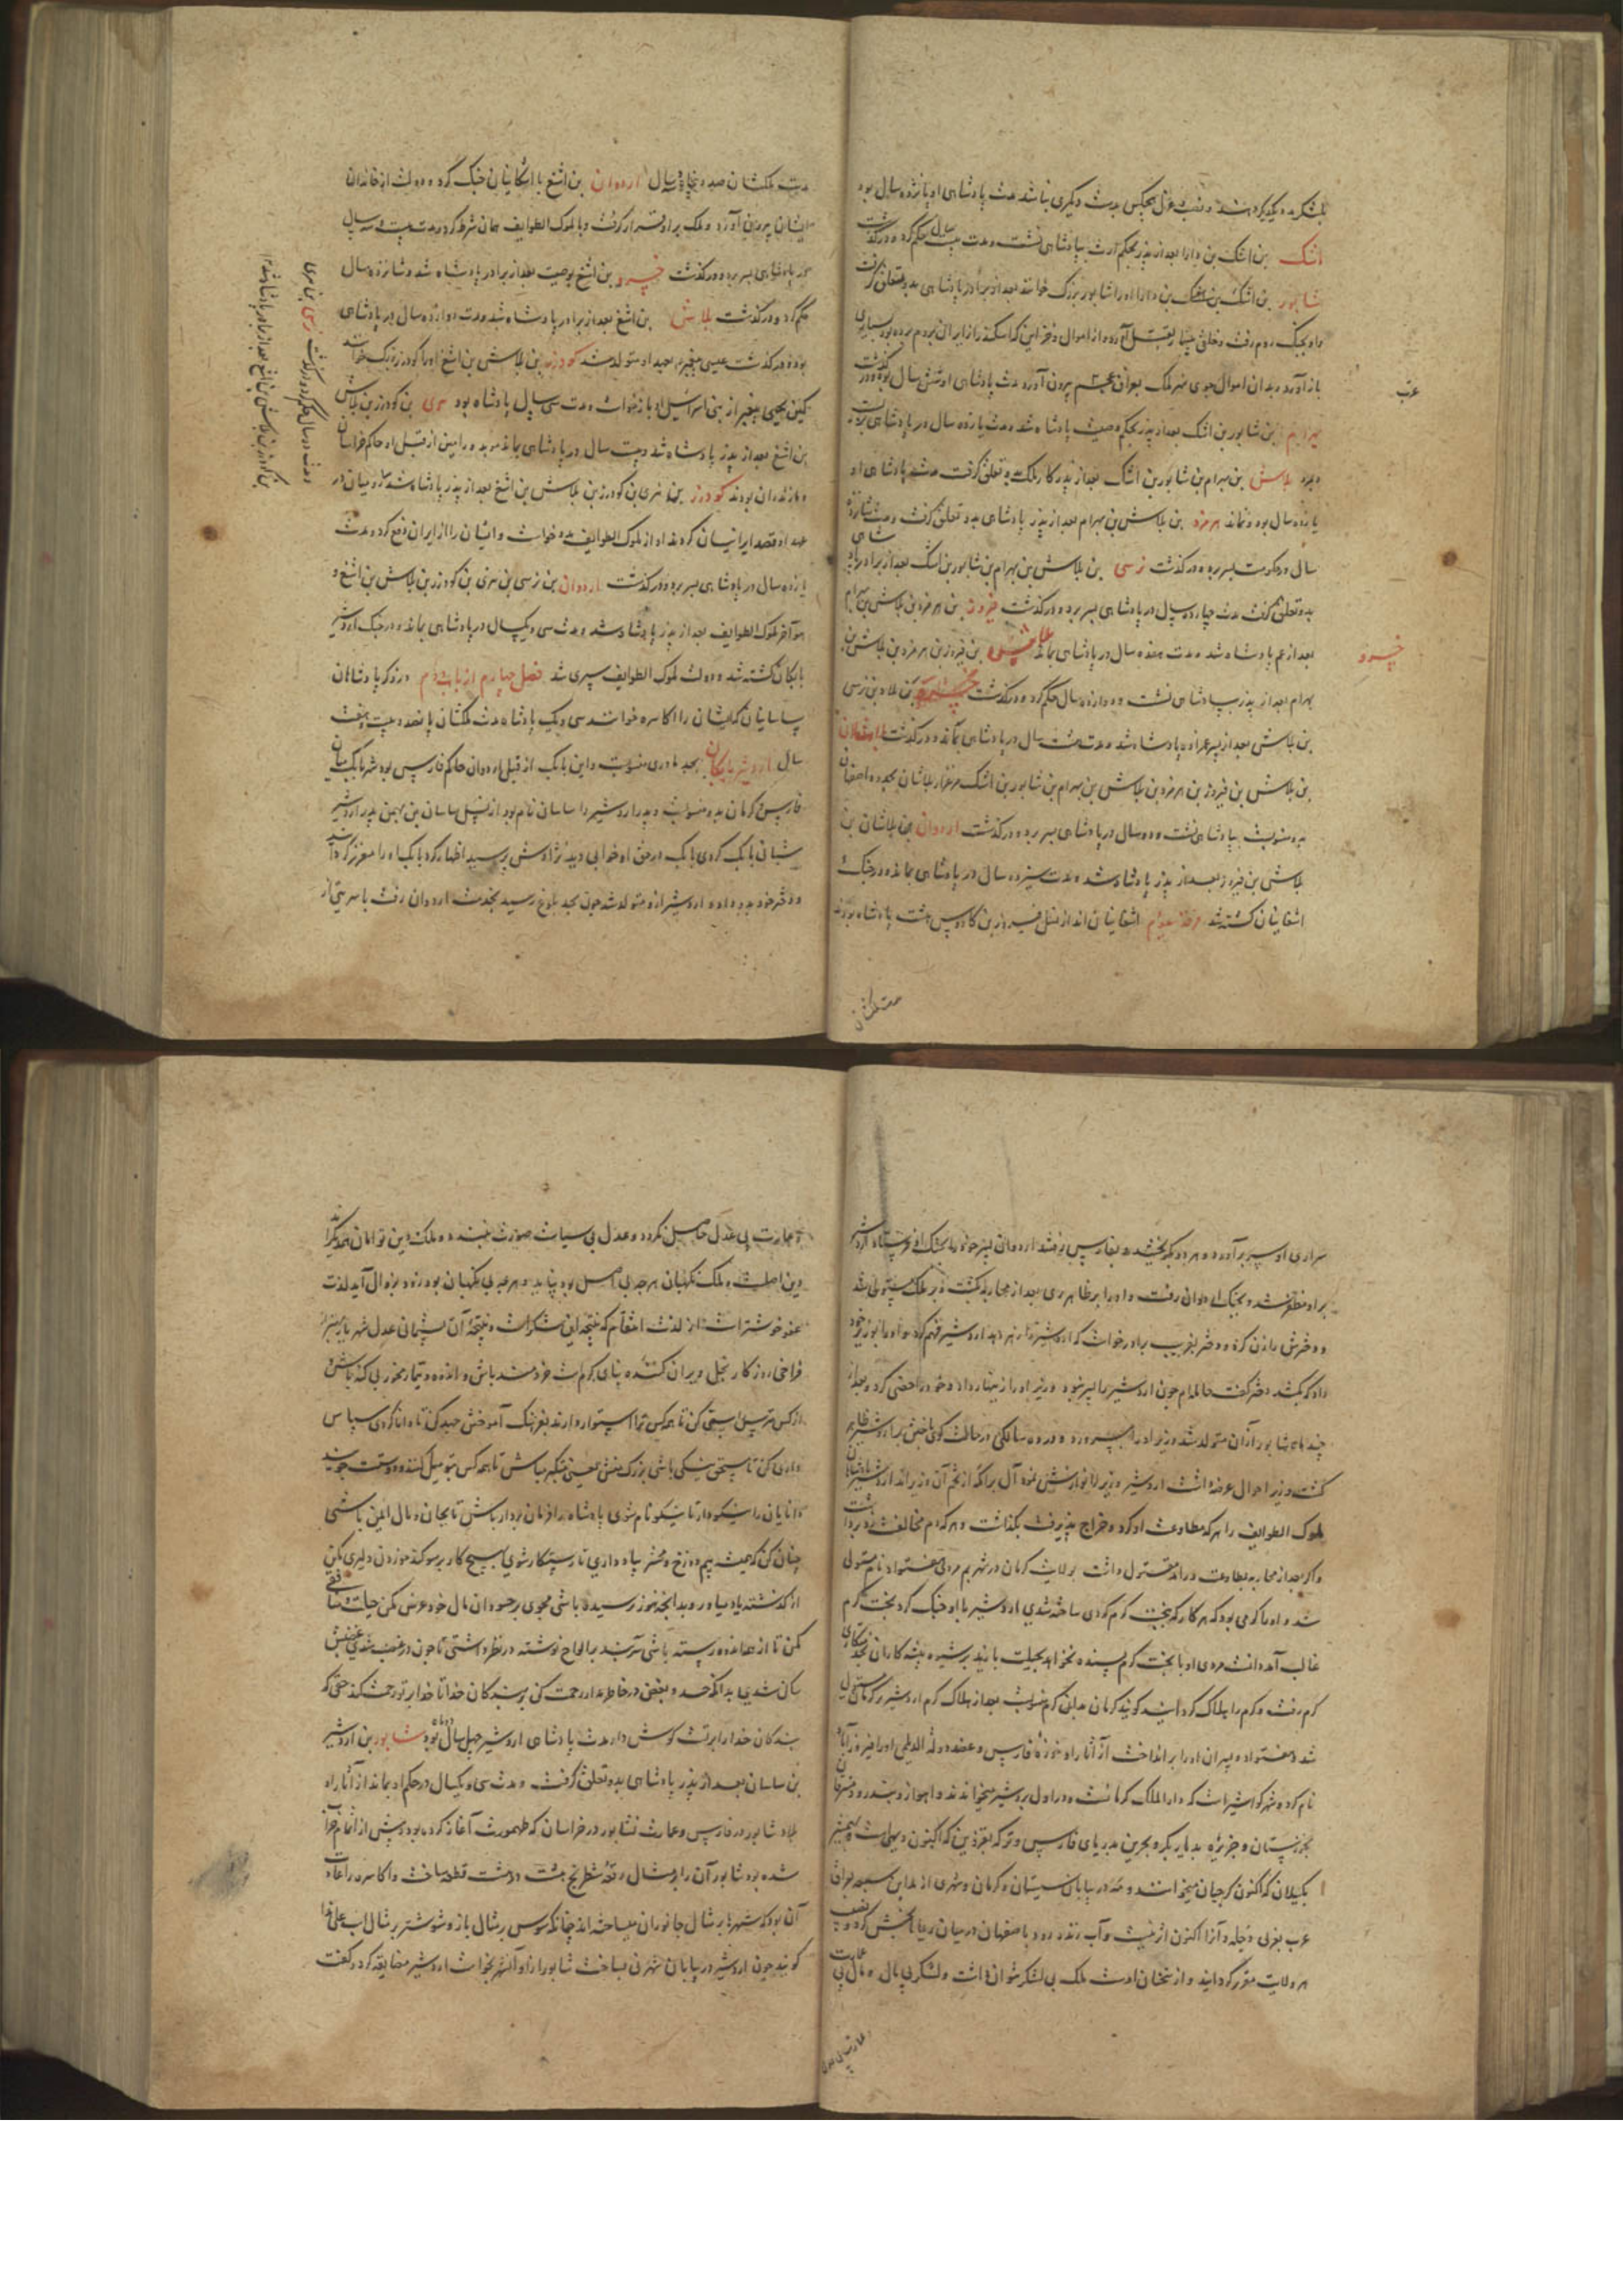 بلشکر مدد یکدیگر کردندی و نصب و عزل هیچکس بدست دیگری نباشد مدت پادشاهی او پانزده سال بود
اشک بن اشک بن دارا بعد از پدر بحکم ارث بپادشاهی نشست و مدت بیست سال حکم کرد و درگذشت
شاپور بن اشک بن اشک بن دارا او را شاپور بزرگ خوانند بعد از برادر پادشاهی بدو تعلق گرفت
و او بجنک روم رفت و خلقی بیشمار بقتل آورد و از اموال و خزاین که اسکندر از ایران بروم برده بود بسیاری
باز آورد و بدان اموال جوی نهر ملک بعراق عجم بیرون آورد مدت پادشاهی او شش سال بود و درگذشت
عرب
بهرام بن شاپور بن اشک بعد از پدر بحکم وصیت پادشاه شد و مدت یازده سال در پادشاهی بزیست
و بمرد بلاش بن بهرام بن شاپور بن اشک بعد از پدر کار ملک بدو تعلق گرفت مدت پادشاهی او
یازده سال بود و نماند هرمزد بن بلاش بن بهرام بعد از پدر پادشاهی بدو تعلق گرفت و مدت شانزده
سال در حکومت بسر برد و درگذشت نرسی بن بلاش بن بهرام بن شاپور بن اشک بعد از برادر پادشاهی
بدو تعلق گرفت مدت چهارده سال در پادشاهی بسر برد و درگذشت فیروز بن هرمزد بن بلاش بن بهرام
بعد از عم پادشاه شد و مدت هفده سال در پادشاهی بماند بلاش بن فیروز بن هرمزد بن بلاش بن
خسرو
بهرام بعد از پدر بپادشاهی نشست و دوازده سال حکم کرد و درگذشت بن بلاد بن نرسی
بن بلاش بعد از پسر عمزاده پادشاه شد و مدت هشت سال در پادشاهی بماند و درگذشت
بن بلاش بن فیروز بن هرمزد بن بلاش بن بهرام بن شاپور بن اشک مرغزار بلاشان بحدود اصفهان
بدو منسوبست بپادشاهی نشست و ده سال در پادشاهی بسر برد و درگذشت اردوان بن بلاشان بن
بلاش بن فیروز بعد از پدر پادشاه شد و مدت سیزده سال در پادشاهی بماند و در جنک
اشغانیان کشته شد فرقه سوم اشغانیان اند از نسل فریبرز بن کاوس هشت پادشاه بودند
مدت ملکشان
مدت ملکشان صد و پنجاه و سه سال اردوان بن اشغ با اشکانیان جنک کرد و دولت از خاندان
ایشان بیرون آورد و ملک بر او قرار گرفت و با ملوک الطوایف همان شرط کرد و مدت بیست و سه سال
در پادشاهی بسر برد و درگذشت خسرو بن اشغ بوصیت بعد از برادر پادشاه شد و شانزده سال
حکم کرد و درگذشت بلاش بن اشغ بعد از برادر پادشاه شد و مدت دوازده سال در پادشاهی
بود و درگذشت عیسی پیغمبر بعهد او متولد شد کودرز بن بلاش بن اشغ او را کودرز بزرک خوانند
کین یحیی پیغمبر از بنی اسرائیل او بازخواست و مدت سی سال پادشاه بود هری بن کودرز بن بلاش
بن اشغ بعد از پدر پادشاه شد و بیست سال در پادشاهی بماند موبد و رامین از قبل او حاکم خراسان
و مازندران بودند کودرز بن هری بن کودرز بن بلاش بن اشغ بعد از پدر پادشاه شد رومیان در
عهد او قصد ایرانیان کردند او از ملوک الطوایف مدد خواست و ایشان را از ایران دفع کرد و مدت
یازده سال در پادشاهی بسر برد و درگذشت اردوان بن نرسی بن هری بن کودرز بن بلاش بن اشغ و
هو آخر ملوک الطوایف بعد از پدر پادشاه شد و مدت سی و یکسال در پادشاهی بماند و در جنک اردشیر
بابکان کشته شد و دولت ملوک الطوایف سپری شد فصل چهارم از باب دوم در ذکر پادشاهان
ساسانیان که ایشان را اکاسره خوانند سی و یک پادشاه مدت ملکشان پانصد و بیست و هفت
سال اردشیر بابکان بجد مادری منسوبست و این بابک از قبل اردوان حاکم فارس بود شهر بابک میان
فارس و کرمان بدو منسوبست و پدر اردشیر را ساسان نام بود از نسل ساسان بن بهمن پدر اردشیر
شبانی بابک کردی بابک در حق او خوابی دید نژادش پرسید اظهار کرد بابک او را معزز گردانید
و دختر خود بدو داد و اردشیر ازو متولد شد چون بحد بلوغ رسید بخدمت اردوان رفت با سریتی از
و مدت ده سال حکم کرد و درگذشت نرسی بن هری
بن کودرز بن بلاش بن اشغ بعد از برادر پادشاه شد ۱۲
سراری او سر برآورد و هر دو بگریختند و بفارس رفتند اردوان پسر خود را بجنک او فرستاد اردشیر
بر او مظفر شد و بجنک اردوان رفت و او را بر ظاهر ری بعد از محاربه بکشت و بر ملک مستولی شد
و دخترش را زن کرد و دختر بفریب برادر خواست که اردشیر را زهر دهد اردشیر فهم کرد و او را بوزیر خود
داد که بکشد دختر گفت حامله ام چون اردشیر را پسر نبود وزیر او را زینهار داد و خود را خصی کرد و بعد از
چند ماه شاپور از آن متولد شد وزیر او را می پرورد و در ده سالگی در حالت گوی باختن بر اردشیر ظاهر
گشت وزیر احوال عرضه داشت اردشیر وزیر را نوازش نمود آل برامکه از تخم آن وزیراند اردشیر پادشاهان
ملوک الطوایف را هر که مطاوعت او کرد و خراج پذیرفت بگذاشت و هر کدام مخالفت نمود برداشت
و اگر بعد از محاربه مطاوعت در آمد مقتول داشت بر ولایت کرمان در شهر بم مردی هفتواد نام مستولی
شد و او را کرمی بود که هر کار که ببخت کرم کردی ساخته شدی اردشیر با او جنک کرد بخت کرم
غالب آمد دانست مردی او با بخت کرم بسنده نخواهد بحیلت بازید برشیوه پیشه کاران بخدمتکاری
کرم رفت و کرم را هلاک گردانید گویند کرمان بدان کرم منسوبست بعد از هلاک کرم اردشیر بر کرمان مستولی
شد و هفتواد و پسران او را برانداخت از آثار او خوره فارس و عضد دوله الدیلمی او را فیروزآباد
نام کرده و شهر کواشیر است که دار الملک کرمانست و در اول بردشیر میخواندند و اهواز و جندرود و میشان
بخوزستان و جزیره بدیار بکر و بحرین بدریای فارس و ترکه بقزوین که اکنون دیهی است و رامشیر
بکیلان که اکنون کرجیان میخوانند و خه در بیابان سیستان و کرمان و شهری از مداین سبعه بعراق
عرب بغربی دجله و آنرا اکنون اثر نیست و آب زنده رود باصفهان در میان رعایا بخش کرد و نصیب
هر ولایت مقرر گردانید و از سخنان اوست ملک بی لشکر نتوان داشت و لشکر بی مال و مال بی عمارت
و عمارت بی عدل
و عمارت بی عدل حاصل نگردد و عدل بی سیاست صورت نبندد و ملک و دین توامان یکدیگراند
دین اصلست و ملک نگهبان هر چه بی اصل بود نپاید و هر چه بی نگهبان بود زود بزوال آید لذت
عفو خوشتر است از لذت انتقام که نتیجه این شکرست و نتیجه آن پشیمانی عدل شهریار بهتر از
فراخی روزگار بخل ویران کننده بنای کرمست خردمند باش و اندوه و تیمار مخور بی گنه باش و
از کس مترس راستی کن تا همه کس ترا استوار دارند بفرهنگ آموختن جهد کن تا دانا گردی سپاس
داری کن تا مستحق نیکی باشی بزرک منش یعنی متکبر مباش تا همه کس بتو میل کنند و دوستت جویند
دانایان را نیکو دار تا نیکو نام شوی پادشاه را فرمان بردار باش تا بجان و مال ایمن باشی
چنان کن که همیشه بیم دوزخ و محشر بیاد داری تا رستگار شوی بهیچ کار بر سوگند خوردن دلیری مکن
از گذشته یاد میاور و بدانچه هنوز نرسیده باشی مجوی بر حسودان مال خود عرض مکن حیات
مکن تا از عذاب دوزخ رسته باشی سه سپند بالواح نوشته در نظر داشتی تا چون در غضب شدی غضبش
ساکن شدی بدانکه حسد و بغض در خاطر مدار رحمت کن بر بندگان خدا تا خدا بر تو رحمت کند حتی که
بندگان خدا را برتست گوش دار مدت پادشاهی اردشیر چهل سال و دو ماه بود شاپور بن اردشیر
بن ساسان بعد از پدر پادشاهی بدو تعلق گرفت و مدت سی و یکسال در حکم او بماند از آثار او
بلاد شاپور در فارس و عمارت نشابور در خراسان که طهمورث آغاز کرده بود و پیش از اتمام خراب
شده بود شاپور آن را بر مثال رقعه شطرنج هشت در هشت قطعه ساخت و اکاسره را عادت
آن بود که شهرها بر مثال جانوران میساخته اند چنانکه سوس بر مثال باز و شوشتر بر مثال اسب علی هذا
گویند چون اردشیر در بیابان شهر نی میساخت شاپور ازو آن شهر بخواست اردشیر مضایقه کرد و گفت